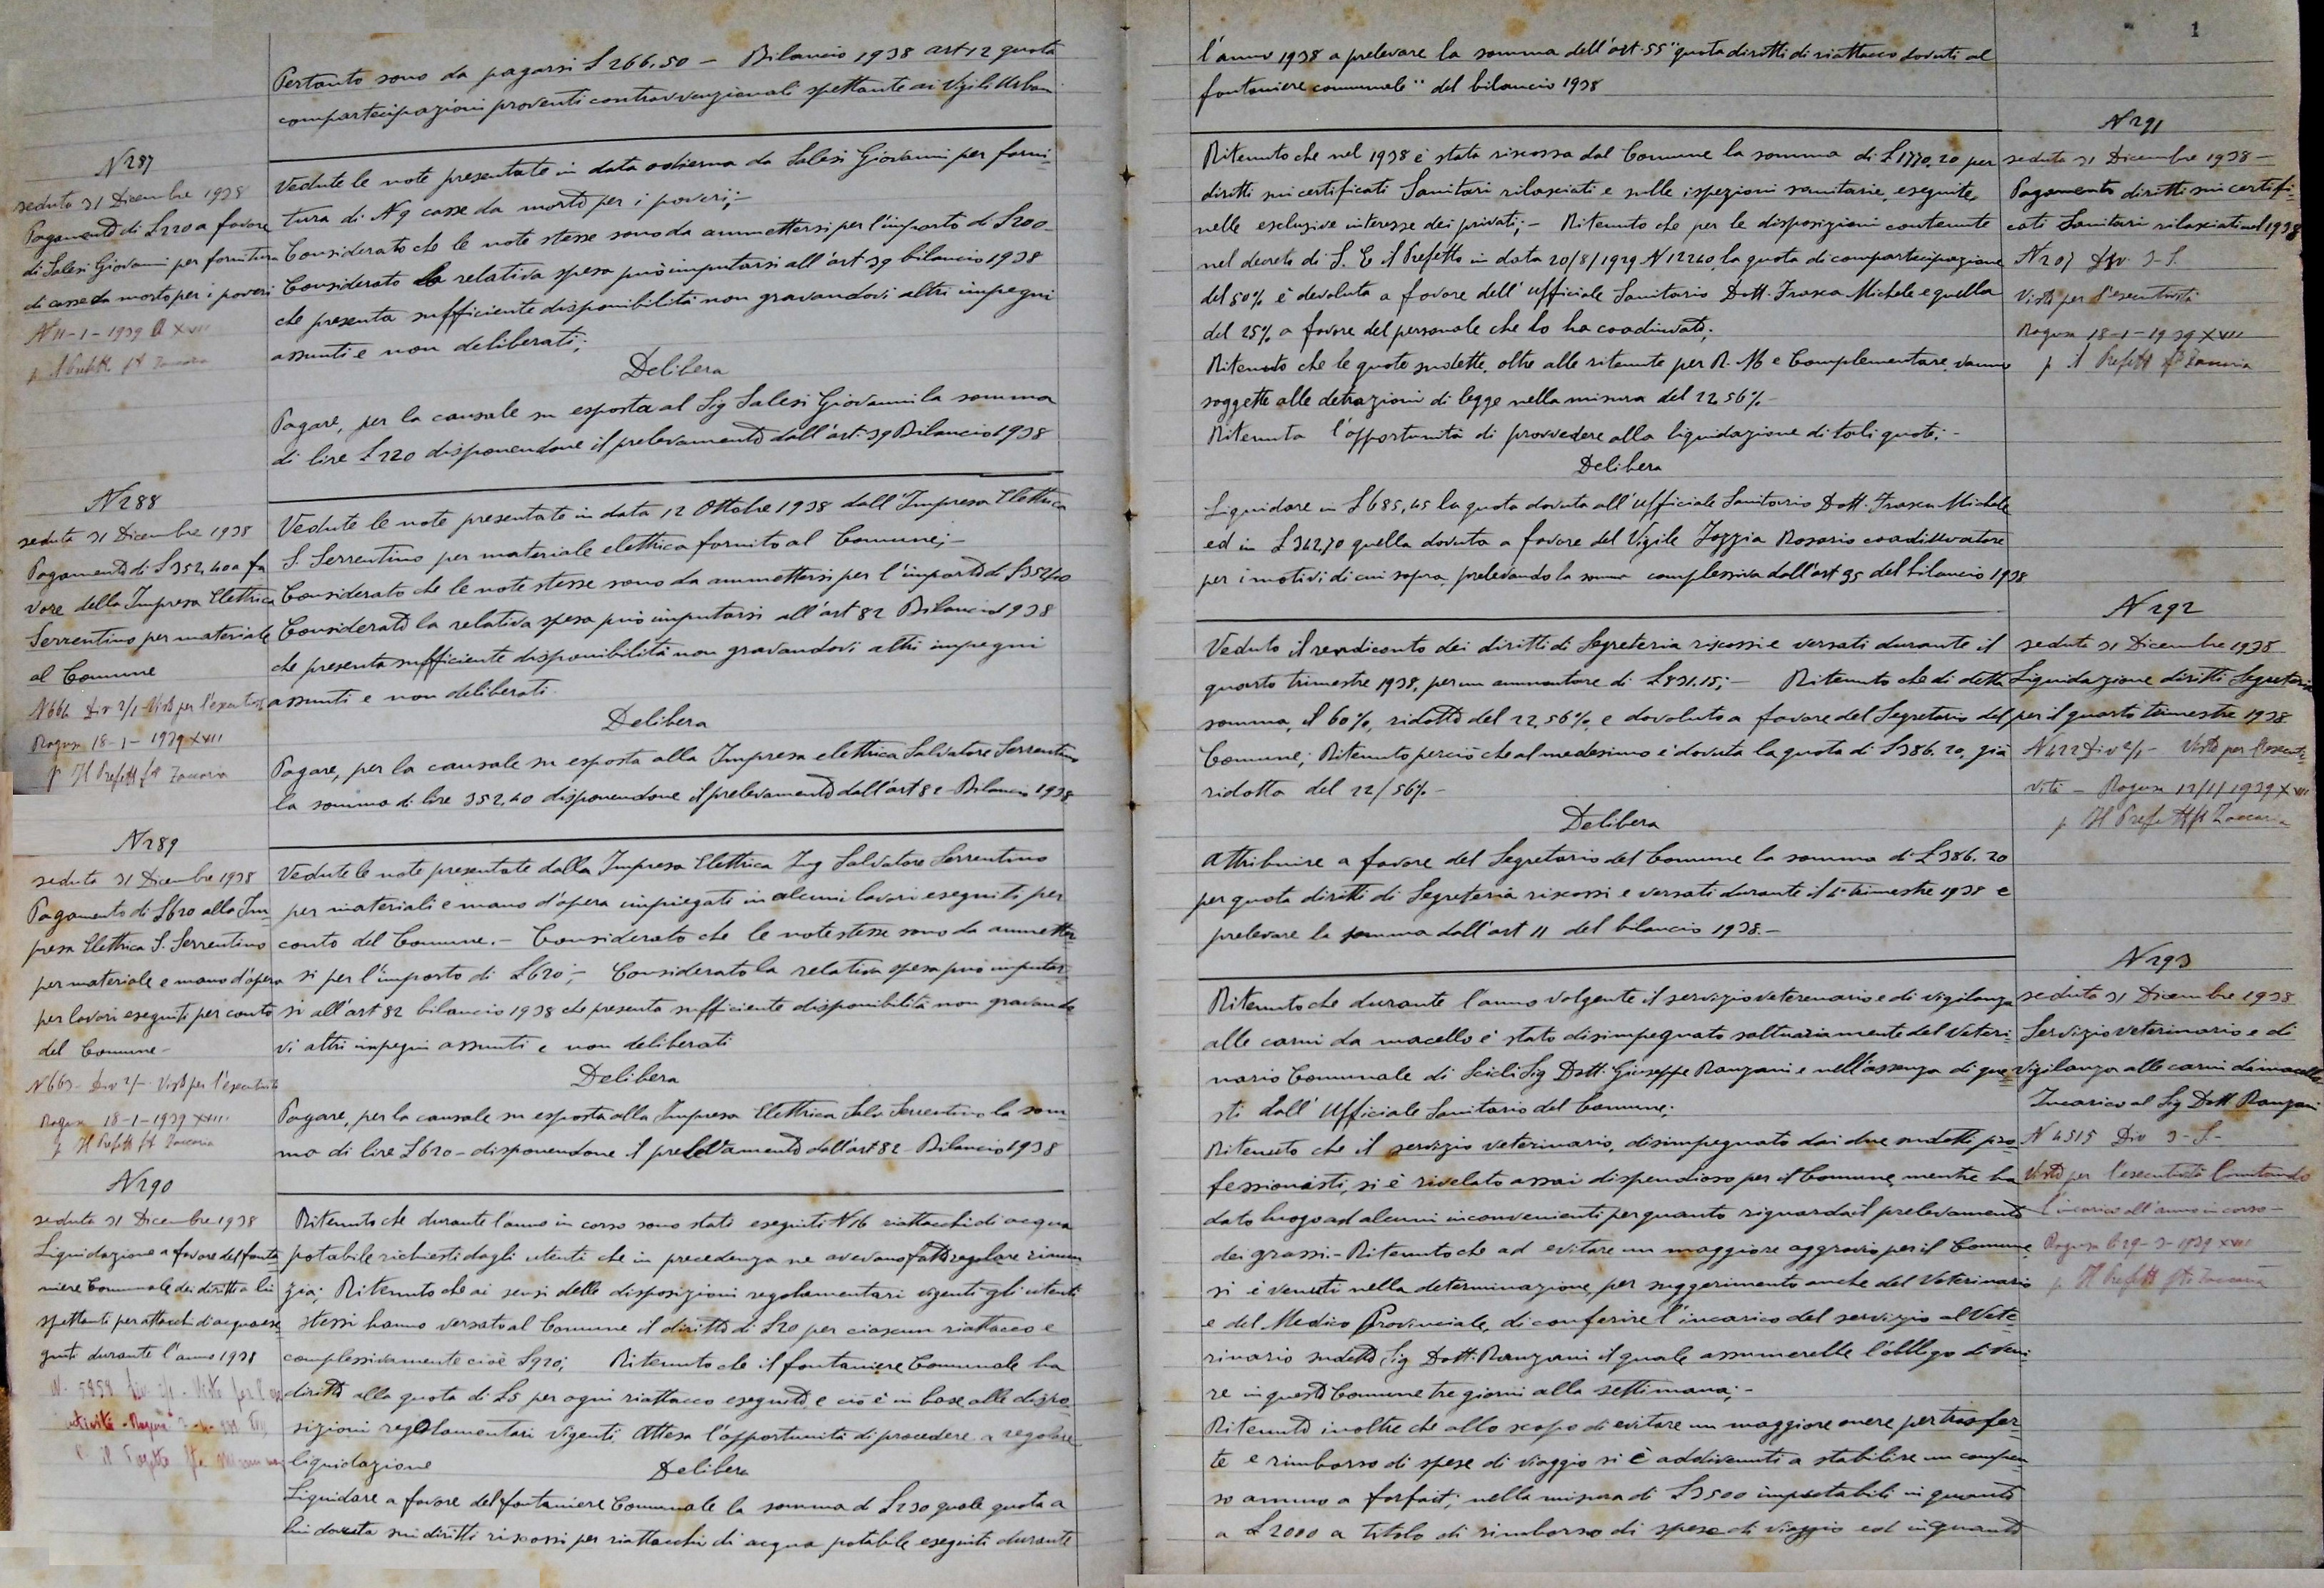 Pertanto sono da pagarsi £ 266.50 - Bilancio 1938 art 12 quota
compartecipazioni proventi contravvenzionali spettante ai Vigili Urbani
N 287
seduta 31 Dicembre 1938
Pagamento di £ 220 a favore
di Salesi Giovanni per fornitura
di casse da morto per i poveri
N 11-1-1939 A XVII
p Il Prefetto ft Zaccaria
Vedute le note presentate in data odierna da Salesi Giovanni per forni-
tura di N 9 casse da morto per i poveri;-
Considerato che le note stesse sono da ammettersi per l'importo di £ 200-
Considerato la relativa spesa può imputarsi all'art 39 bilancio 1938
che presenta sufficiente disponibilità non gravandovi altri impegni
assunti e non deliberati;
Delibera
Pagare, per la causale su esposta al Sig Salesi Giovanni la somma
di lire £ 220 disponendone il prelevamento dall'art. 39 Bilancio 1938
N 288
seduta 31 Dicembre 1938
Pagamento di £ 352,40 a fa
vore della Impresa Elettrica
Serrentino per materiale
al Comune
N 664 Div 2/1 Visto per l'esecutività
Ragusa 18-1-1939 XVII
p Il Prefetto ft Zaccaria
Vedute le note presentate in data 12 Ottobre 1938 dall'Impresa Elettrica
S. Serrentino per materiale elettrica fornito al Comune;-
Considerato che le note stesse sono da ammettersi per l'importo di £ 352,40
Considerato la relativa spesa può imputarsi all'art 82 Bilancio 1938
che presenta sufficiente disponibilità non gravandovi altri impegni
assunti e non deliberati.
Delibera
Pagare, per la causale su esposta alla Impresa elettrica Salvatore Serrentino
la somma di lire 352.40 disponendone il prelevamento dall'art 82 Bilancio 1938
N 289
seduta 31 Dicembre 1938
Pagamento di £ 620 alla Im-
presa Elettrica S. Serrentino
per materiale e mano d'opera
per lavori eseguiti per conto
del Comune-
N 663- Div 2/1- Visto per l'esecutività
Ragusa 18-1-1939 XVII
p Il Prefetto ft Zaccaria
Vedute le note presentate dalla Impresa Elettrica Ing Salvatore Serrentino
per materiali e mano d'opera impiegati in alcuni lavori eseguiti per
conto del Comune.- Considerato che le note stesse sono da ammetter
si per l'importo di £ 620;- Considerato la relativa spesa può imputar-
si all'art 82 bilancio 1938 che presenta sufficiente disponibilità non gravando
vi altri impegni assunti e non deliberati
Delibera
Pagare, per la causale su esposta alla Impresa Elettrica Salv Serrentino la som
ma di lire £ 620- disponendone il prelevamento dall'art 82 Bilancio 1938
N 290
seduta 31 Dicembre 1938
Liquidazione a favore del fonta
niere Comunale dei diritti a lui
spettanti per attacchi di acqua ese
guiti durante l'anno 1938
Ritenuto che durante l'anno in corso sono stati eseguiti N 46 riattacchi di acqua
potabile richiesti dagli utenti che in precedenza ne avevano fatto regolare rinun
zia; Ritenuto che ai sensi delle disposizioni regolamentari vigenti gli utenti
stessi hanno versato al Comune il diritto di £ 20 per ciascun riattacco e
complessivamente cioè £ 920; Ritenuto che il fontaniere Comunale ha
diritto alla quota di £ 5 per ogni riattacco eseguito e ciò è in base alle dispo
sizioni regolamentari vigenti Attesa l'opportunità di procedere a regolare
liquidazione
Delibera
Liquidare a favore del fontaniere Comunale la somma di £ 230 quale quota a
lui dovuta sui diritti riscossi per riattacchi di acqua potabile eseguiti durante
1
l'anno 1938 a prelevare la somma dell'art. 55 "quota diritti di riattacco dovuti al
fontaniere comunale" del bilancio 1938
N 291
seduta 31 Dicembre 1938-
Pagamento diritti sui certifi-
cati Sanitari rilasciati nel 1938
N 207 Div 3 S.
Visto per l'esecutività
Ragusa 18-1-1939 XVII
p Il Prefetto ft Zaccaria
Ritenuto che nel 1938 è stata riscossa dal Comune la somma di £ 1770,20 per
diritti sui certificati Sanitari rilasciati e sulle ispezioni sanitarie, eseguite
nelle esclusive interesse dei privati;- Ritenuto che per le disposizioni contenute
nel decreto di S. E Il Prefetto in data 20/8/1929 N 12240, la quota di compartecipazione
del 50% è devoluta a favore dell'ufficiale Sanitario Dott. Frasca Michele e quella
del 25% a favore del personale che lo ha coadiuvato;
Ritenuto che le quote sudette, oltre alle ritenute per R. M e Complementare vanno
soggette alle detrazioni di legge nella misura del 22,56%-
Ritenuta l'opportunità di provvedere alla liquidazione di tali quote;-
Delibera
Liquidare in £ 685,45 la quota dovuta all'ufficiale Sanitario Dott. Frasca Michele
ed in £ 342,70 quella dovuta a favore del Vigile Iozzia Rosario coadiuvatore
per i motivi di cui sopra, prelevando la somma complessiva dall'art 95 del bilancio 1938
N 292
seduta 31 Dicembre 1938
Liquidazione diritti Segreteria
per il quarto trimestre 1938
N 422 Div 2/1- Visto per l'esecuti-
vità - Ragusa 12/1/1939 XVII
p Il Prefetto ft Zaccaria
Veduto il rendiconto dei diritti di Segreteria riscossi e versati durante il
quarto trimestre 1938, per un ammontare di £ 831.15;- Ritenuto che di detta
somma, il 60%, ridotto del 22,56%, e dovoluto a favore del Segretario del
Comune; Ritenuto perciò che al medesimo è dovuta la quota di £ 386.20, già
ridotta del 22/56%-
Delibera
Attribuire a favore del Segretario del Comune la somma di £ 386.20
per quota diritti di Segreteria riscossi e versati durante il 4° trimestre 1938 e
prelevare la somma dall'art 11 del bilancio 1938.-
N 293
seduta 31 Dicembre 1938
Servizio veterinario e di
vigilanza alle carni da macello
Incarico al Sig Dott Ranzani
N 4515 Div 3-S-
Visto per l'esecutività limitando
l'incarico all'anno in corso-
Ragusa li 29-3-1939 XVII
p Il Prefetto ft Zaccaria
Ritenuto che durante l'anno volgente il servizio veterenario e di vigilanza
alle carni da macello è stato disimpegnato saltuariamente del Veteri-
nario Comunale di Scicli Sig Dott. Giuseppe Ranzani e nell'assenza di que-
sti dall'Ufficiale Sanitario del Comune.
Ritenuto che il servizio veterinario, disimpegnato dai due sudetti pro
fessionisti, si è rivelato assai dispendioso per il Comune mentre ha
dato luogo ad alcuni inconvenienti per quanto riguarda il prelevamento
dei grassi.- Ritenuto che ad evitare un maggiore aggravio per il Comune
si è venuti nella determinazione, per suggerimento anche del Veterinario
e del Medico Provinciale, di conferire l'incarico del servizio al Vete-
rinario sudetto Sig Dott. Ranzani il quale assumerebbe l'obbligo di veni
re in questo Comune tre giorni alla settimana;-
Ritenuto inoltre che allo scopo di evitare un maggiore onere per trasfer-
te e rimborso di spese di viaggio si è addivenuti a stabilire un compen
so annuo a forfait, nella misura di £ 3500 imputabili in quanto
a £ 2000 a titolo di rimborso di spese di viaggio ed in quanto